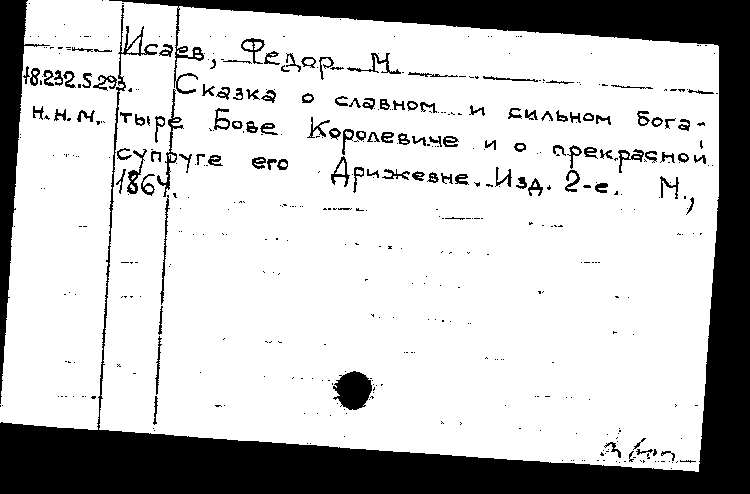 Исаев, Федор М.
18.232.5.293. Сказка о славном и сильном бога-
Н.Н.М. тыре Бове Королевиче и о прекрасной
супруге его Дрижевне. Изд. 2-е. М.,
1864.